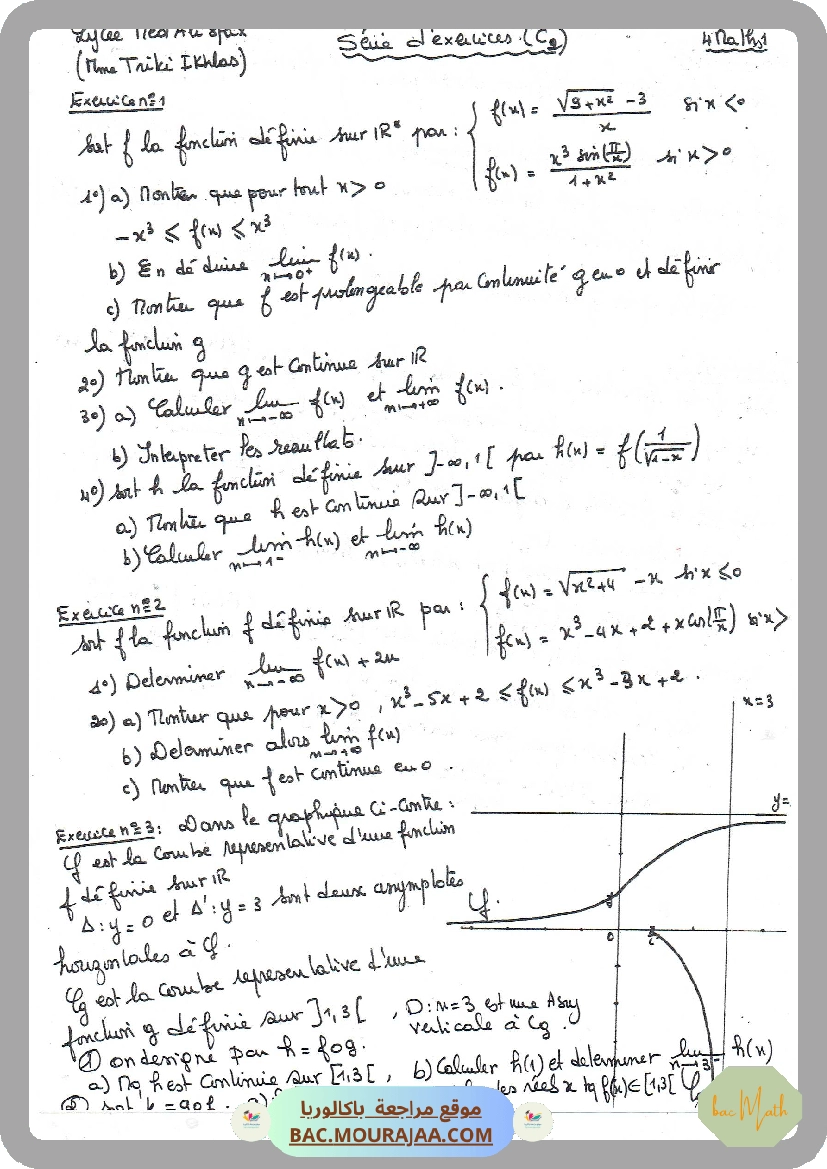 Lycée Hedi
(Mme Triki Ikhlas)
Série d'exercices.
4 Maths1
Exercice n°1
Soit f la fonction définie sur IR* par : { f(x) = (√(9+x²) - 3)/x si x < 0
f(x) = (x³ sin(π/x))/(1+x²) si x > 0
1°) a) Montrer que pour tout x > 0
-x³ ≤ f(x) ≤ x³
b) En déduire lim x→0⁺ f(x).
c) Montrer que f est prolongeable par continuité g en 0 et définir
la fonction g
2°) Montrer que g est continue sur IR
3°) a) Calculer lim x→-∞ f(x) et lim x→+∞ f(x).
b) Interpreter les resultats.
4°) Soit h la fonction définie sur ]-∞,1[ par h(x) = f(1/√(1-x))
a) Montrer que h est continue sur ]-∞,1[
b) Calculer lim x→1⁻ h(x) et lim x→-∞ h(x)
Exercice n°2
soit f la fonction f définie sur IR par : { f(x) = √(x²+4) - x si x ≤ 0
f(x) = x³ - 4x + 2 + x cos(π/x) si x >
1°) Determiner lim x→-∞ f(x) + 2x
2°) a) Montrer que pour x > 0, x³ - 5x + 2 ≤ f(x) ≤ x³ - 3x + 2.
b) Determiner alors lim x→+∞ f(x)
c) Montrer que f est continue en 0.
x = 3
y =
Exercice n°3 : Dans le graphique ci-contre :
Cf est la courbe representative d'une fonction
f définie sur IR
Δ : y = 0 et Δ' : y = 3 sont deux asymptotes
horizontales à Cf.
Cf
0
1
Cg est la courbe representative d'une
fonction g définie sur ]1,3[, D : x = 3 est une Asy
verticale à Cg.
① on designe par h = fog.
a) Mq h est continue sur [1,3[, b) Calculer h(1) et determiner lim x→3⁻ h(x)
② soit k = gof. les réels x tq f(x) ∈ [1,3[
موقع مراجعة باكالوريا
BAC.MOURAJAA.COM
bac Math